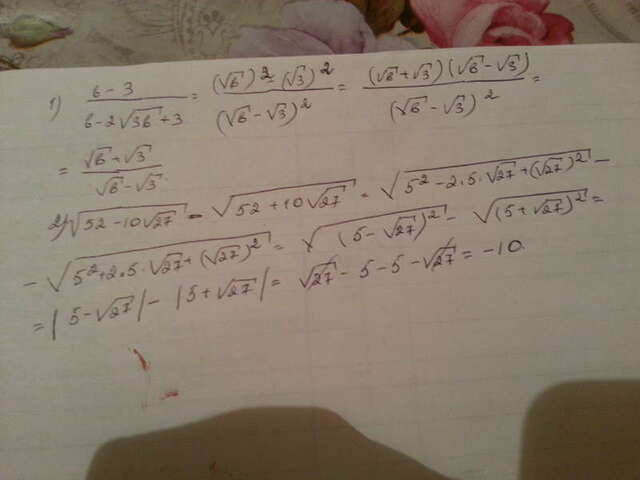 1) (b - 3)/(b - 2√3b + 3) = ((√b)² - (√3)²)/((√b - √3)²) = ((√b + √3)(√b - √3))/((√b - √3)²) =
= (√b + √3)/(√b - √3)
2) √(52 - 10√27) - √(52 + 10√27) = √(5² - 2·5·√27 + (√27)²) -
- √(5² + 2·5·√27 + (√27)²) = √((5 - √27)²) - √((5 + √27)²) =
= |5 - √27| - |5 + √27| = √27 - 5 - 5 - √27 = -10.